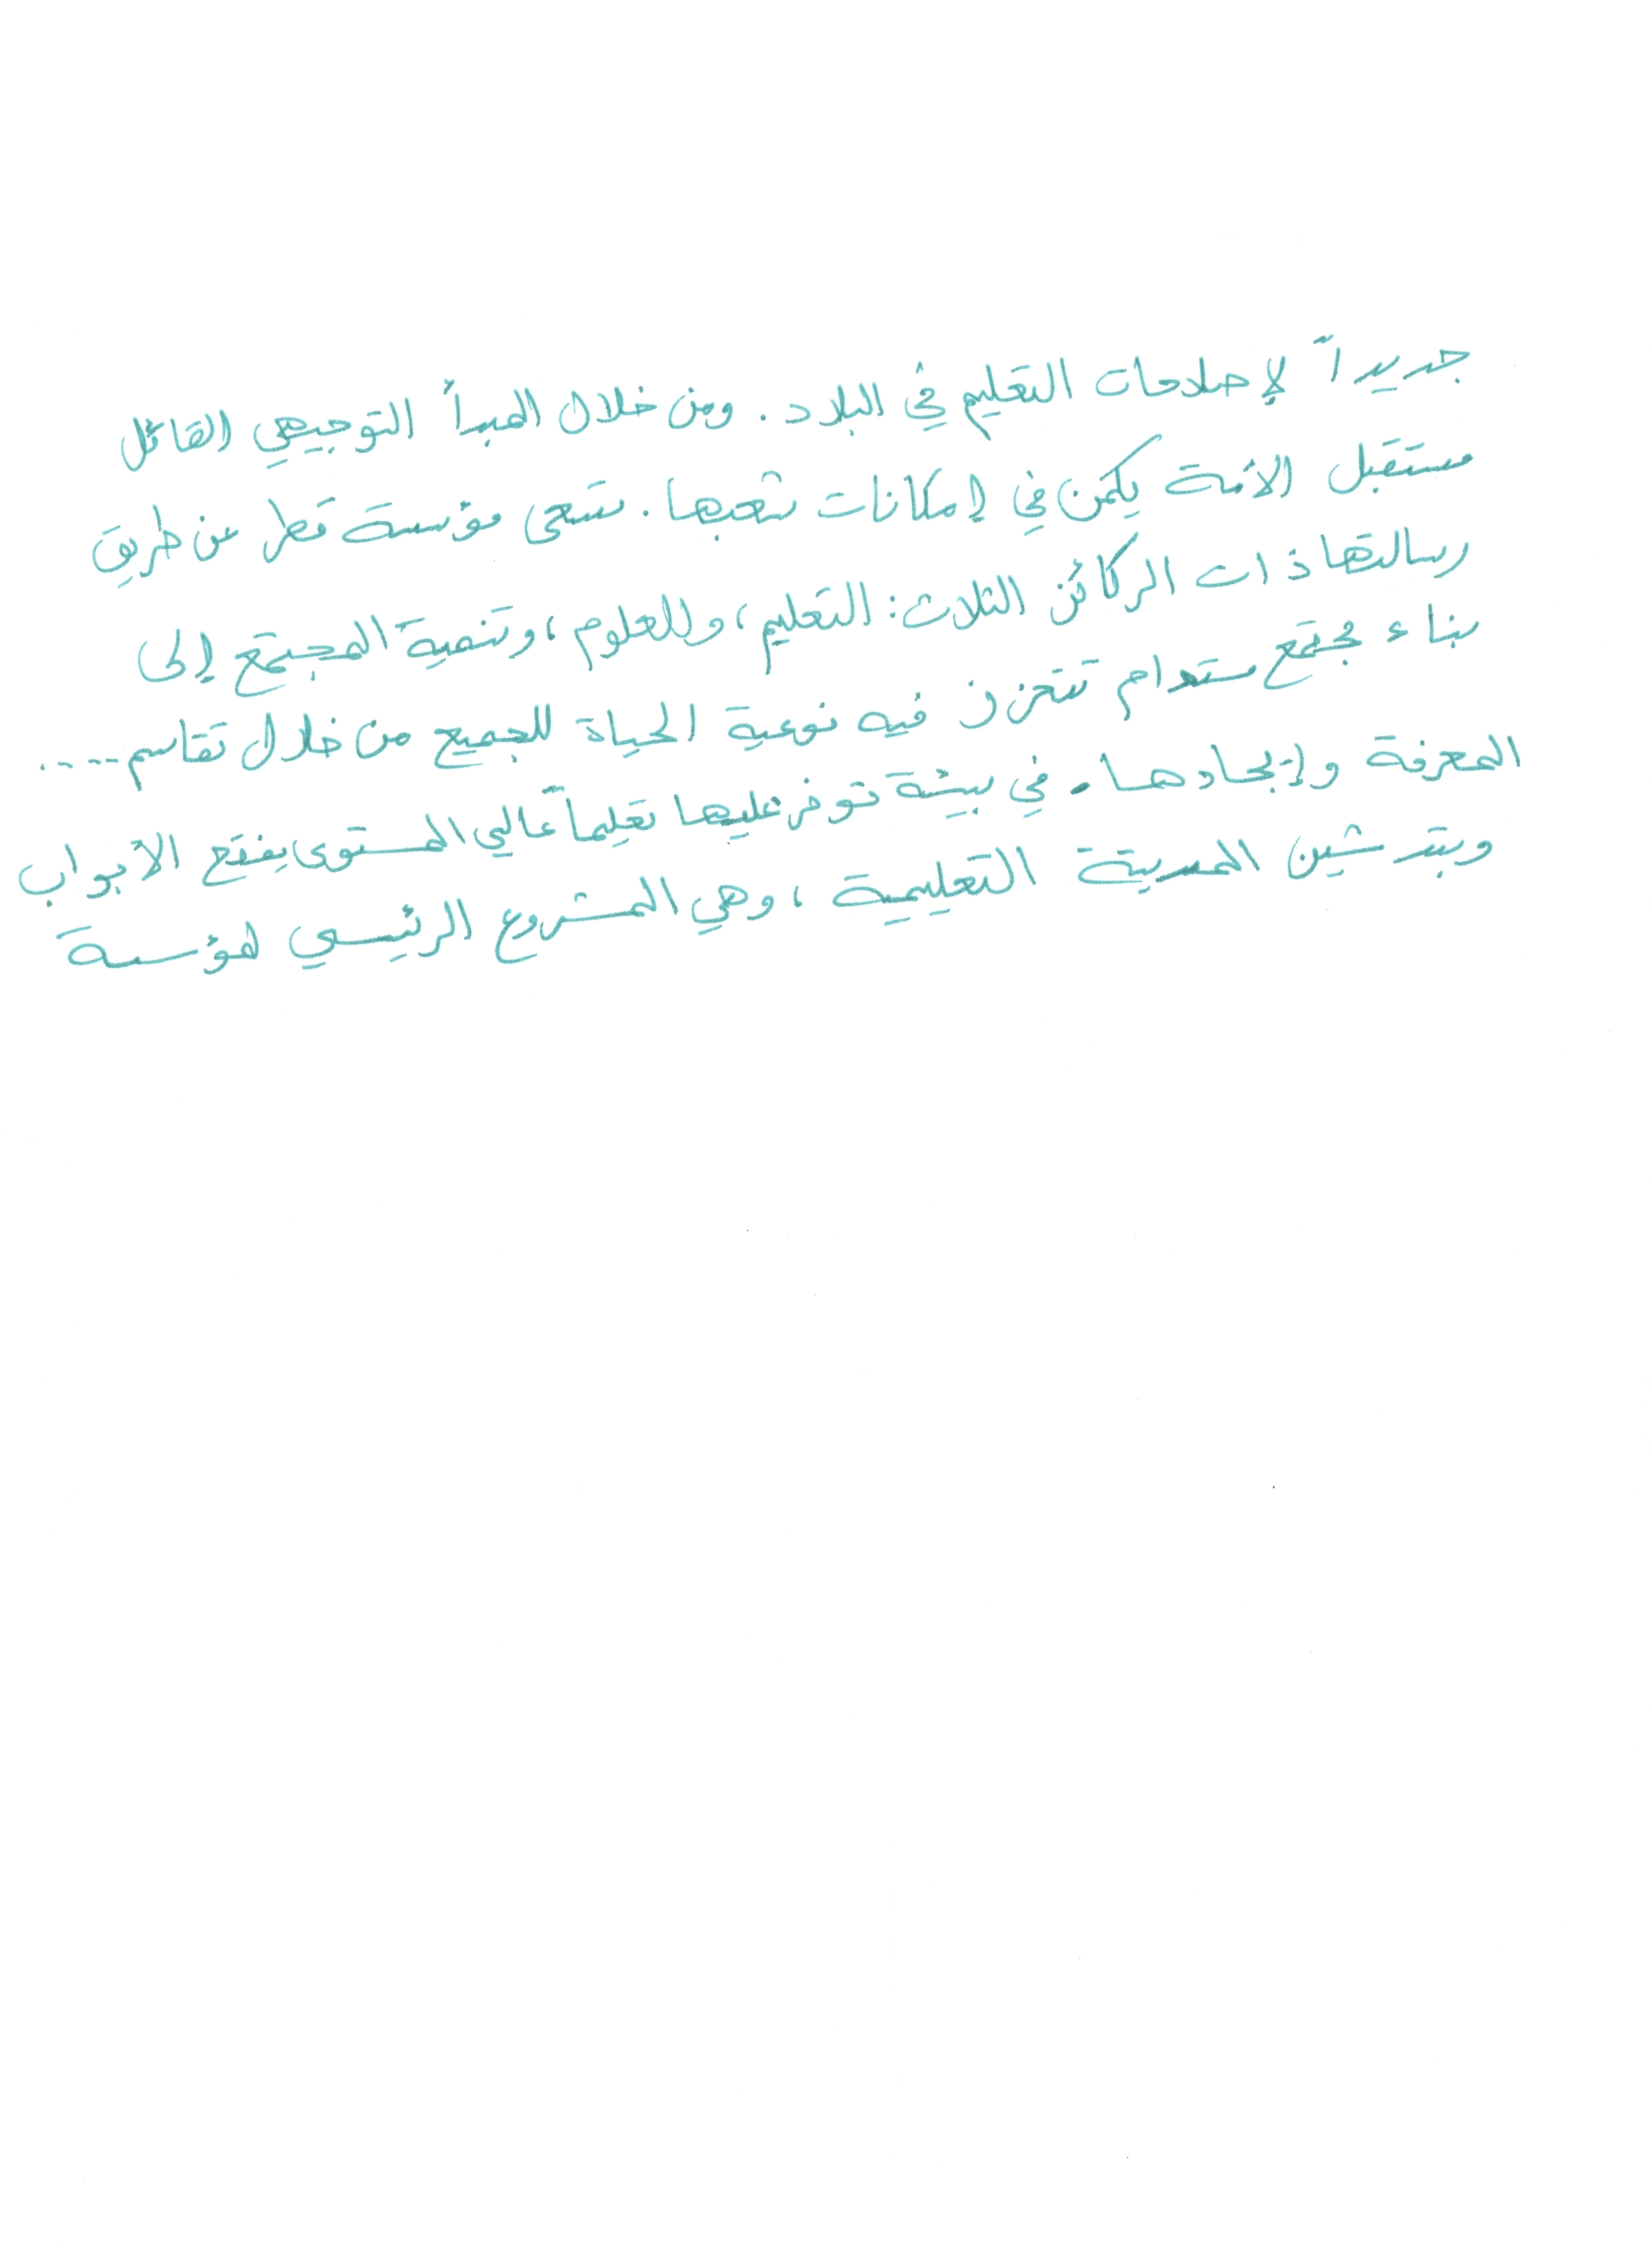 جديداً لإصلاحات التعليم في البلاد. ومن خلال المبدأ التوجيهي القائل
مستقبل الأمة يكمن في إمكانات شعبها. تسعى مؤسسة قطر عن طريق
رسالتها ذات الركائز الثلاث: التعليم، والعلوم، وتنمية المجتمع إلى
بناء مجتمع مستدام تتعزز فيه نوعية الحياة للجميع من خلال تقاسم....
المعرفة وإيجادها. في بيئة توفر عليها تعليماً عالي المستوى يفتح الأبواب
وبتدشين المدينة التعليمية، وهي المشروع الرئيسي لمؤسسة